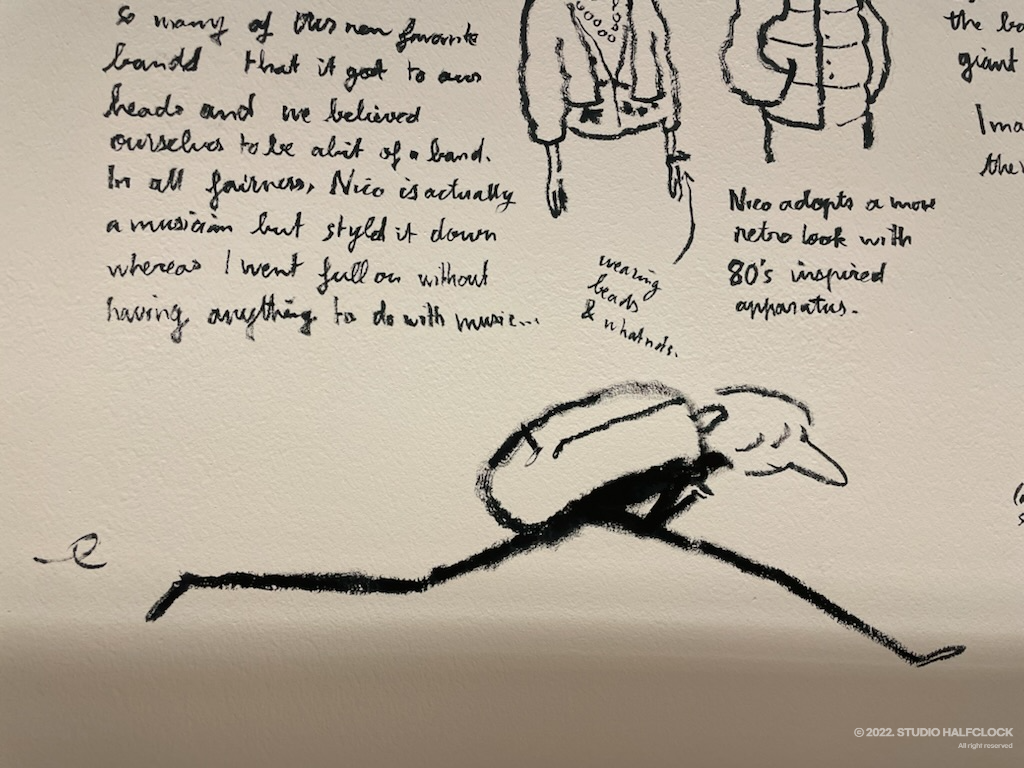 so many of this new favorite
bands that it got to our
heads and we believed
ourselves to be a bit of a band.
In all fairness, Nico is actually
a musician but styled it down
whereas I went full on without
having anything to do with music...
wearing
beads
& whatnots.
Nico adopts a more
retro look with
80's inspired
apparatus.
the ba
giant
Ima
their
© 2022. STUDIO HALFCLOCK
All right reserved